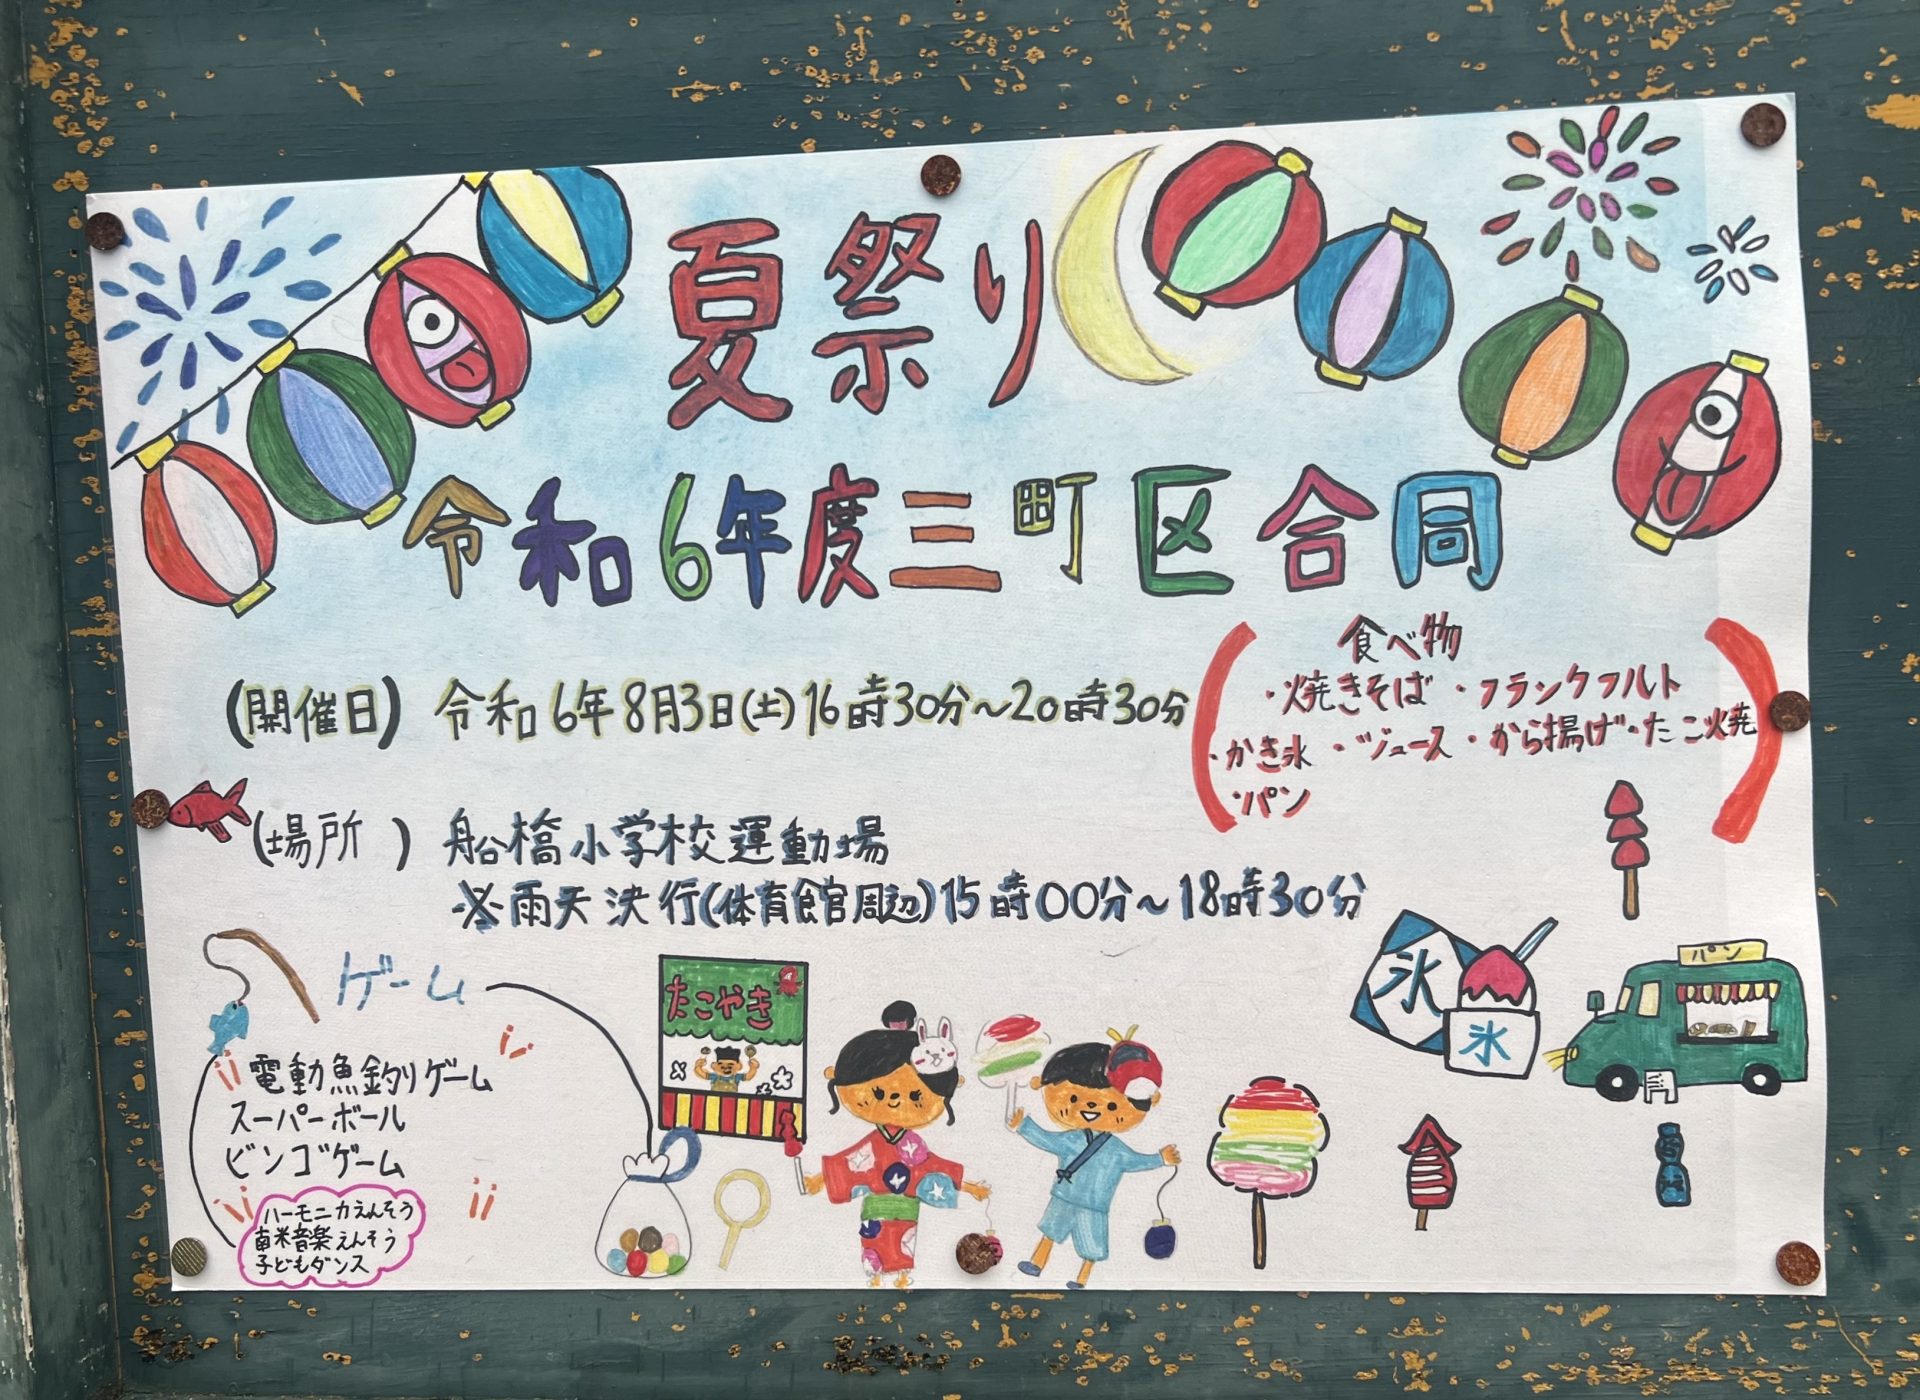 夏祭り
令和6年度三町区合同
(開催日) 令和6年8月3日(土)16時30分～20時30分
食べ物
・焼きそば ・フランクフルト
・かき氷 ・ジュース ・から揚げ・たこ焼
・パン
(場所 ) 船橋小学校運動場
※雨天決行(体育館周辺)15時00分～18時30分
ゲーム
電動魚釣りゲーム
スーパーボール
ビンゴゲーム
ハーモニカえんそう
南米音楽えんそう
子どもダンス
たこやき
氷
氷
パン